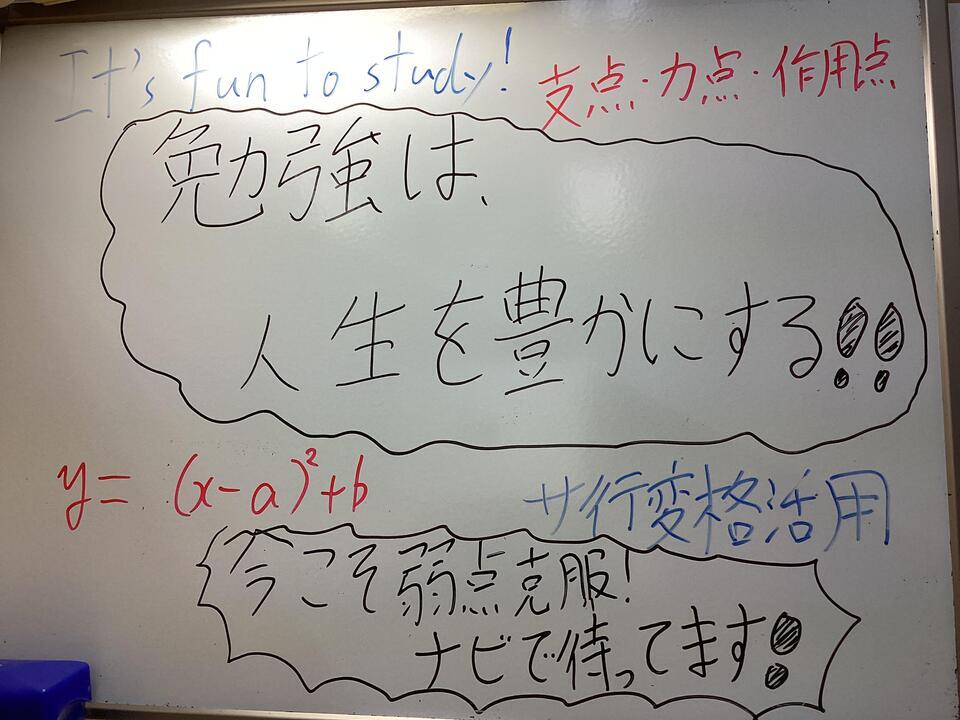 It's fun to study!
支点・力点・作用点
勉強は、
人生を豊かにする!!
y = (x-a)²+b
サ行変格活用
今こそ弱点克服!
ナビで待ってます!